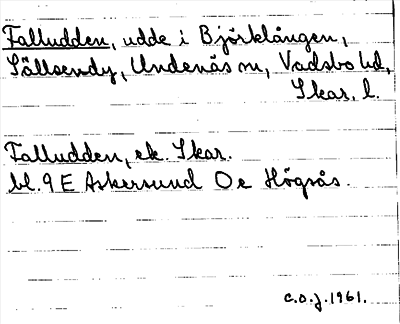 Falludden, udde i Björklången,
Sällsendy, Undenäs sn, Vadsbo hd,
Skar. l.
Falludden, ek. Skar.
bl. 9 E Askersund O e Högsås.
C.O.J. 1961.